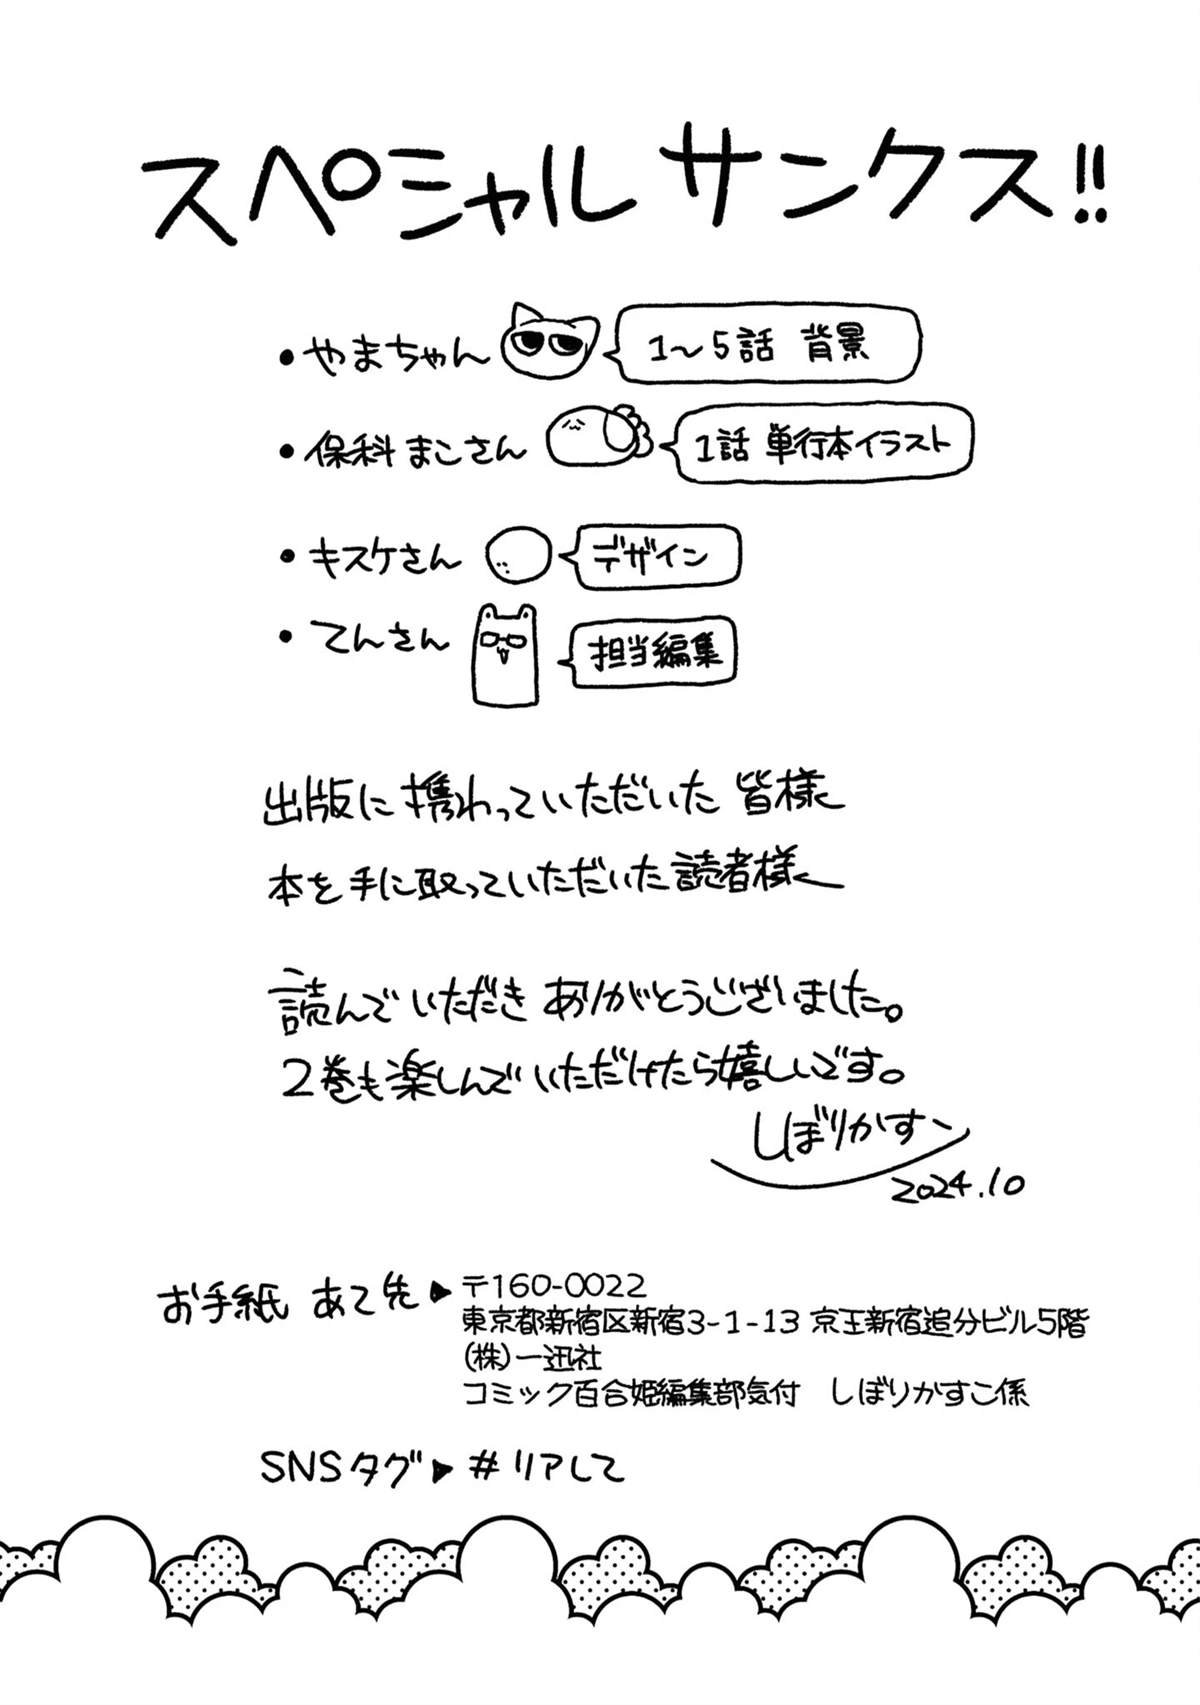 スペシャルサンクス!!
・やまちゃん 1〜5話 背景
・保科まこさん 1話 単行本イラスト
・キスケさん デザイン
・てんさん 担当編集
出版に携わっていただいた皆様
本を手に取っていただいた読者様
読んでいただきありがとうございました。
2巻も楽しんでいただけたら嬉しいです。
しぼりかすこ
2024.10
お手紙 あて先▶ 〒160-0022
東京都新宿区新宿3-1-13 京王新宿追分ビル5階
(株)一迅社
コミック百合姫編集部気付 しぼりかすこ係
SNSタグ▶ #リアして